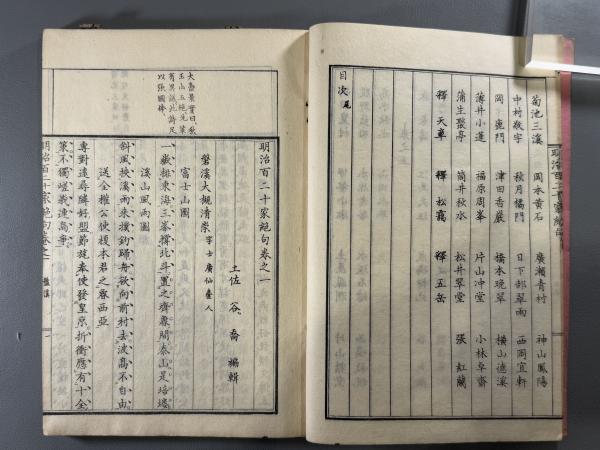 菊池三溪 岡本黄石 廣瀬青村 神山鳳陽
中村敬宇 秋月橘門 日下部翠雨 西岡宜軒
岡 鹿門 津田香巖 橋本晩翠 横山德溪
薄井小蓮 福原周峯 片山冲堂 小林卓齋
蒲生褧亭 筒井秋水 松井翠堂 張 紅蘭
釋 天章 釋 松靄 釋 五岳
目次 尾
明治百二十家絶句
明治百二十家絶句卷之一
土佐 谷 喬 編輯
磐溪大槻清崇 字士廣仙臺人
富士山圖
一嶽排東海三峯撐北斗置之齊魯間泰山是培塿
溪山風雨圖
斜風挾溪雨來撲釣歸舟欲向前村去波高不自由
送全權公使榎本君之魯西亞
專對遠尋隣好盟節旄奉使發皇京折衝應有十全
策不獨嵯
大
玉山
有
以張國
明治百二十家絶句卷之一
磐溪
一